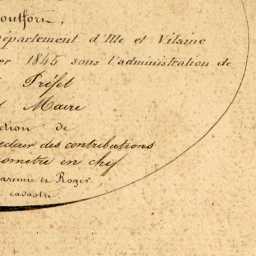 ontfort,
épartement d'Ille et Vilaine
er 1845 sous l'administration de
Préfet
Maire
ction de
cteur des contributions
omètre en chef
et Roger
cadastre